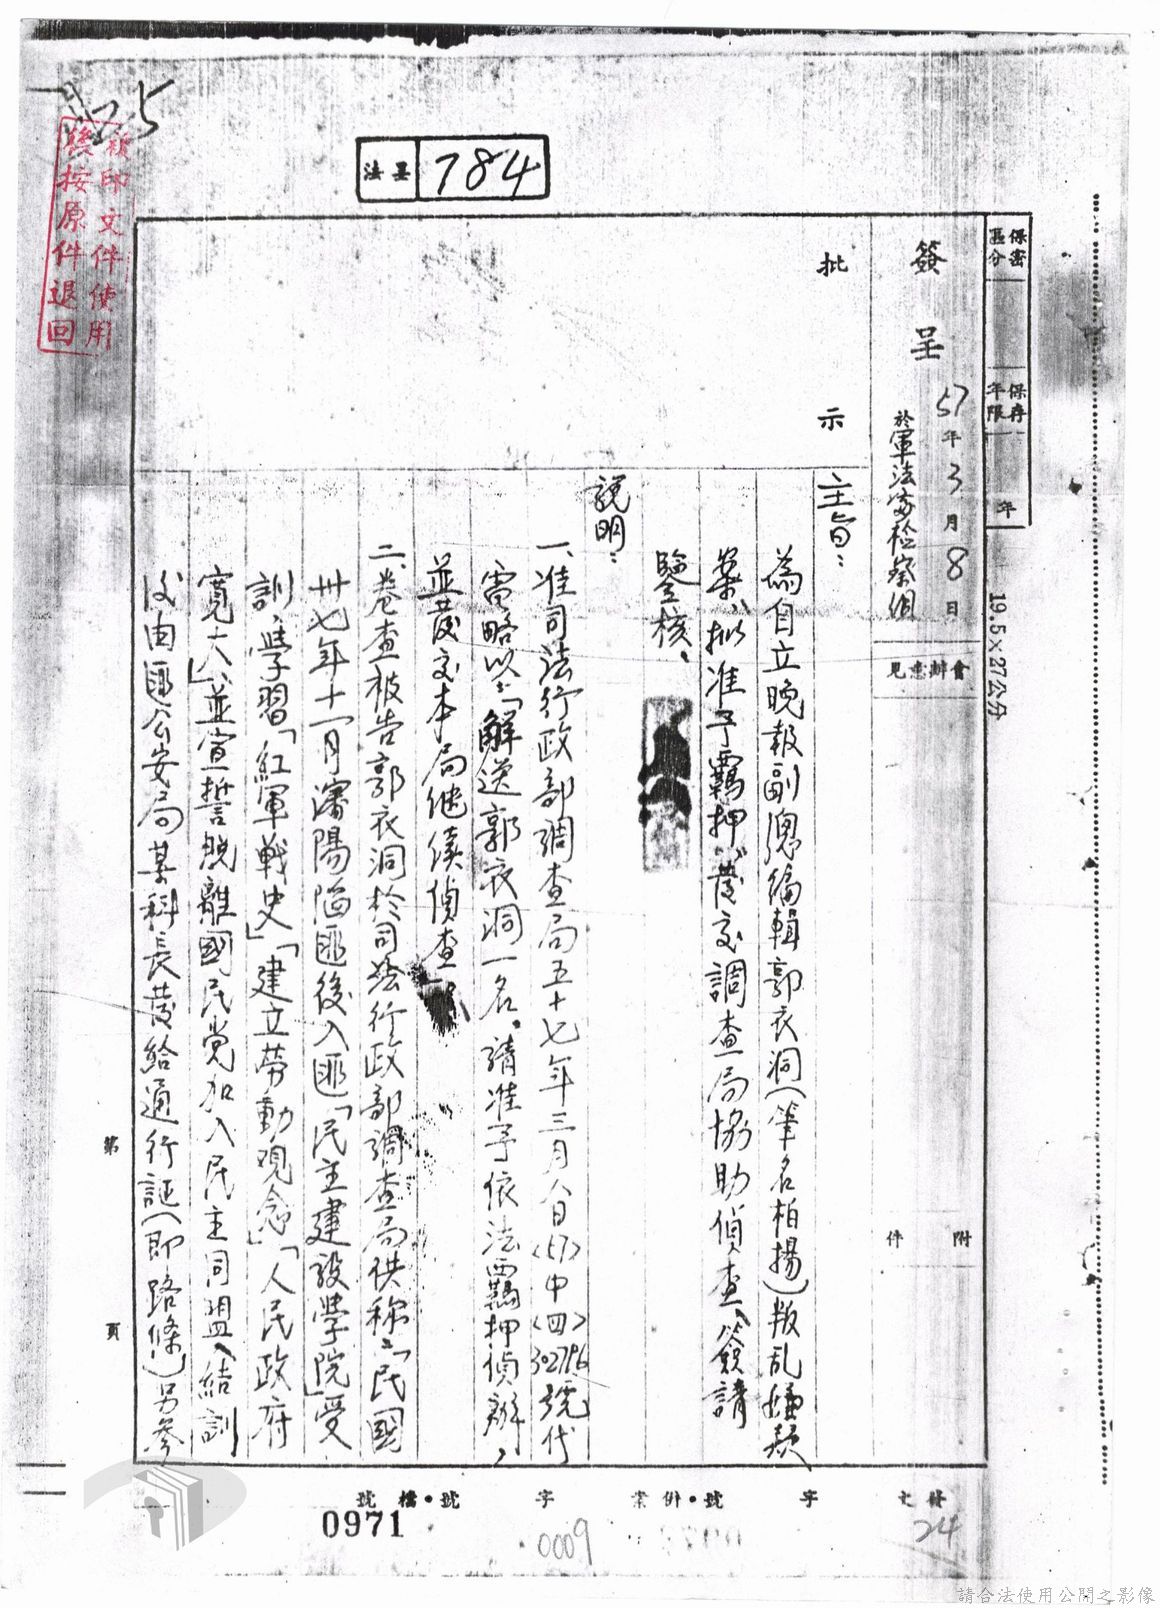 保密區分
保存年限
年
19.5×27公分
簽呈
57年3月8日
於軍法處检察组
會辦意見
附件
批示
主旨：
為自立晚報副總编輯郭衣洞(筆名柏揚)叛乱嫌疑
案，拟准予羈押、發交調查局協助偵查、簽請
鑒核。
說明：
一、准司法行政部調查局五十七年三月八日<57>中<四>302796號代
電略以：「解送郭衣洞一名。請准予依法羈押偵辦，
並發交本局继续偵查」。
二、卷查被告郭衣洞於司法行政部調查局供称：「民國
卅七年十一月瀋陽陷匪後入匪「民主建設学院」受
訓、學習「紅軍戰史」「建立劳動观念」「人民政府
寬大」、並宣誓脱離國民党加入民主同盟、結訓
后由匪公安局某科長發給通行証(即路條)另參
發文
字
號・併案
字
號・檔號
24
0009
0971
第
頁
法呈 784
複印文件使用
後按原件退回
請合法使用公開之影像